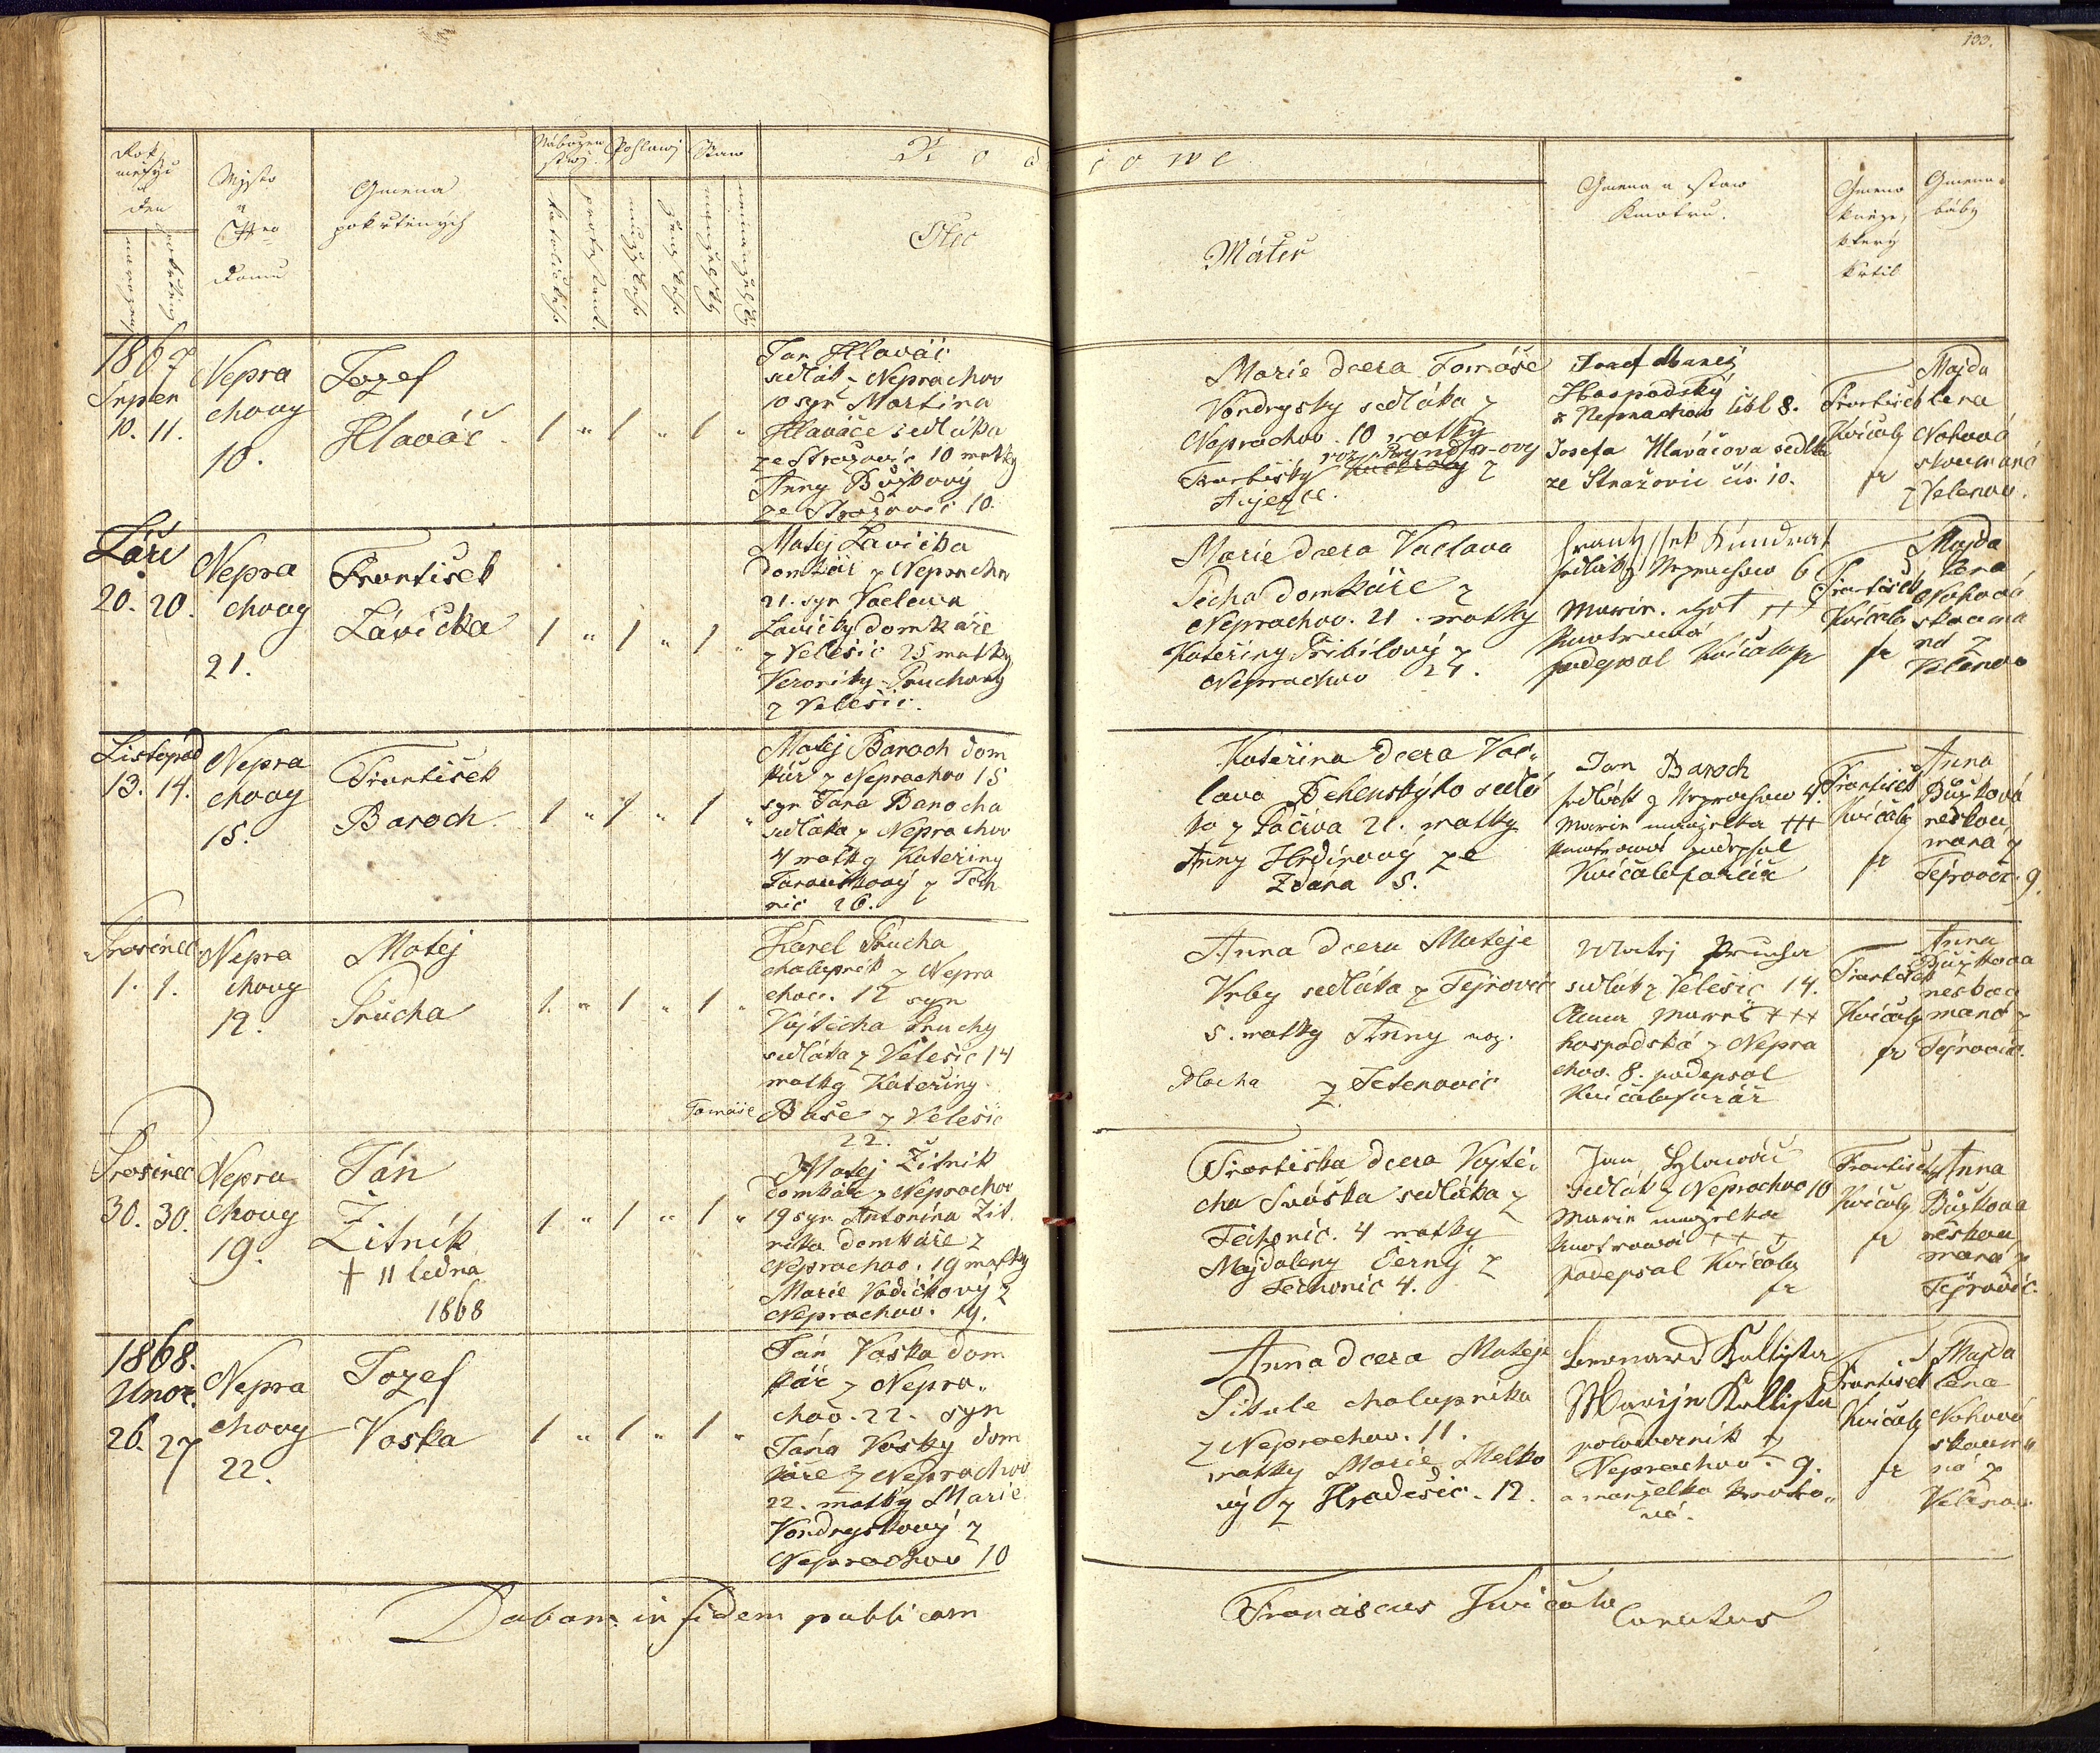 133.
Rok
měsýc
a
den
narozen
pokřtěný
Mýsto
a
Čjslo
domu
Gmena
pokřtěných
Nábožen
stwj
Pohlawj
Staw
katolického
protestant.
mužského
ženského
manželský
nemanželský
R o d
i o w e
Otec
Máteř
Gmena a staw
Kmotrů.
Gmeno
kněze,
který
křtil
Gmeno
báby
1867
Srpen
10. 11.
Nepra
chovy
10.
Jozef
Hlaváč
1 " 1 " 1 "
Jan Hlaváč
sedlák z Neprachov
10 syn Martina
Hlaváče sedláka
ze Stražovic 10 matky
Anny Bůžkový
ze Stražovic 10.
Marie dcera Tomáše
Vondrysky sedláka z
Neprachov. 10 matky
roz.
Františky z
Josef Mareš
Hospodský
z Neprachov čísl 8.
Josefa Hlaváčova sedlka
ze Stražovic čís. 10.
František
Kvíčala
fr
Majda
lena
Nohová
skoumaná
z Velenov.
Září
20. 20.
Nepra
chovy
21.
František
Lávička
1 " 1 " 1 "
Matěj Lavička
domkář z Neprachov
21. syn Vaclava
Lavičky domkáře
z Velešic 25 matky
Veroniky Pruchovy
z Velešic.
Marie dcera Vaclava
Pecha domkáře z
Neprachov. 21. matky
Kateřiny Přibilový z
Neprachov 24.
Frantissek Kundrat
sedlák z Neprachow 6
Marie +++
kmotrowá
podepsal Kvíčala fr
František
Kvíčala
fr
Majda
lena
Nohová
skouma
ná z
Velenov
Listopad
13. 14.
Nepra
chovy
15.
František
Baroch
1 " 1 " 1 "
Matěj Baroch dom
kář z Neprachov 15
syn Jana Barocha
sedláka z Neprachov
4 matky Kateřiny
z Tech
nic 26.
Kateřina dcera Vac„
lava Behenskýho sedlá
ka z Pačiva 21. matky
Anny Hrdinový ze
Zdára 5.
Jan Baroch
sedlák z Neprachow 4.
Marie manželka +++
kmotrowá podepsal
Kvíčala farář
František
Kvíčala
fr
Anna
Bůžková
neskou
maná z
Tejrovic. 9.
Prosinec
1. 1.
Nepra
chovy
12.
Matěj
Průcha
1. " 1 " 1 "
Karel Průcha
chalupník z Nepra
chov. 12 syn
Vojtěcha Pruchy
sedláka z Velešic 14
matky Kateřiny
Tomáše Buše z Velešic
22.
Anna dcera Matěje
Vrby sedláka z Tejrovic
5. matky Anny roz.
Macha z Tetenovic
Matěj Prucha
sedlák z Velešic 14.
Anna Mareš +++
hospodská z Nepra
chov. 8. podepsal
Kvíčala farář
František
Kvíčala
fr
Anna
Bůžkova
neskou
maná z
Tejrovic.
Prosinec
30. 30.
Nepra
chovy
19.
Ján
Žitník
+ 11 ledna
1868
1. " 1 " 1 "
Matěj Žitník
domkář z Neprachov
19 syn Antonína Žit.
níka domkáře z
Neprachov. 19 matky
Marie Vodičkový z
Neprachov. 19.
Františka dcera Vojtě„
cha Sváška sedláka z
Těchonic. 4 matky
Majdaleny Černý z
Těchonic 4.
Jan Hlawáč
sedlák z Neprachov 10
Marie manželka
kmotrowá + + +
podepsal Kvíčala
fr
František
Kvíčala
fr
Anna
Bůžkova
neskou
maná z
Tejrovic.
1868.
Unor.
26. 27
Nepra
chovy
22.
Jozef
Voska
1 " 1 " 1 "
Ján Voska dom
kář z Nepra„
chov. 22. syn
Jána Vosky dom
káře z Neprachov
22. matky Marie
Vondryskový z
Neprachov 10
Anna dcera Matěje
Pitule chalupníka
z Neprachov. 11.
matky Marie Melko
vý z Hradešic. 12.
Leonard Kallista
Marije Kallista
polodvorník z
Neprachov. 9.
a manželka kmotro„
vá.
František
Kvíčala
fr
Majda
lena
Nohová
skoum„
ná z
Velenov
Dabam in fidem publicam
Franciscus Kvíčala
Curatus